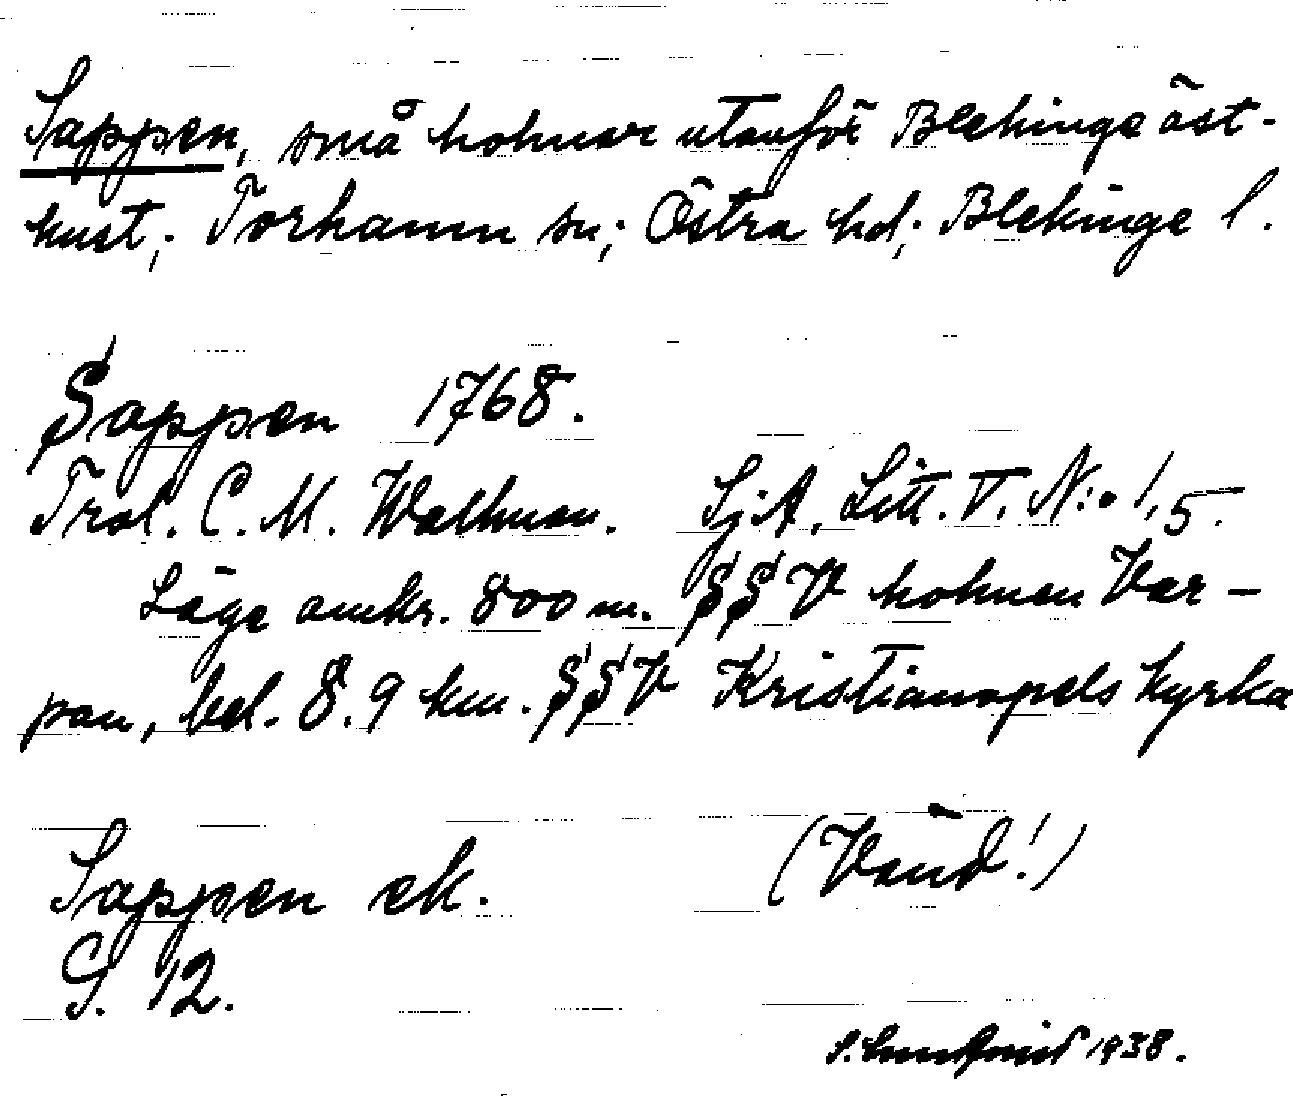 Sappen, små holmar utanför Blekinge öst-
kust; Torhamn sn; Östra hd; Blekinge l.
Sappen 1768.
Trol. C. M. Wallman. Sj.A. Litt. V. N:o 1,5.
Läge omkr. 800 m. SSV holmen Var-
pan, bel. 8.9 km. SSV Kristianopels kyrka
Sappen ek.
S. 12.
(Vänd!)
1938.